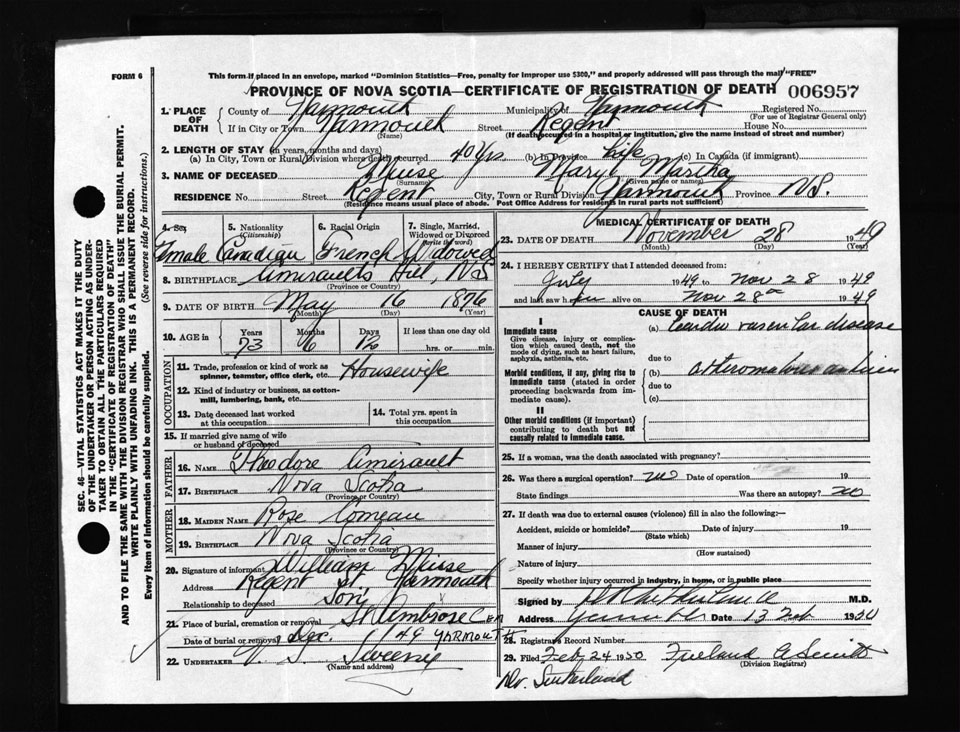 FORM 6
This form if placed in an envelope, marked "Dominion Statistics—Free, penalty for improper use $300," and properly addressed will pass through the mail "FREE"
PROVINCE OF NOVA SCOTIA—CERTIFICATE OF REGISTRATION OF DEATH 006957
1. PLACE OF DEATH
County of Yarmouth Municipality of Yarmouth Registered No.
(For use of Registrar General only)
If in City or Town Yarmouth Street Regent House No.
(Name) (If death occurred in a hospital or institution, give the name instead of street and number)
2. LENGTH OF STAY (in years, months and days)
(a) In City, Town or Rural Division where death occurred 40 Yrs. (b) In Province Life (c) In Canada (if immigrant)
3. NAME OF DECEASED Muise Mary Martha
(Surname) (Given name or names)
RESIDENCE No. Street Regent City, Town or Rural Division Yarmouth Province N.S.
(Residence means usual place of abode. Post Office Address for residents in rural parts not sufficient)
4. Sex 5. Nationality (Citizenship) 6. Racial Origin 7. Single, Married, Widowed or Divorced (write the word)
Female Canadian French Widowed
8. BIRTHPLACE Amiraults Hill, N.S
(Province or Country)
9. DATE OF BIRTH May 16 1876
(Month) (Day) (Year)
10. AGE in Years Months Days If less than one day old
73 6 12 hrs. or min.
OCCUPATION
11. Trade, profession or kind of work as spinner, teamster, office clerk, etc. Housewife
12. Kind of industry or business, as cotton-mill, lumbering, bank, etc.
13. Date deceased last worked at this occupation
14. Total yrs. spent in this occupation
15. If married give name of wife or husband of deceased
FATHER
16. NAME Theodore Amirault
17. BIRTHPLACE Nova Scotia
(Province or Country)
MOTHER
18. MAIDEN NAME Rose Comeau
19. BIRTHPLACE Nova Scotia
(Province or Country)
20. Signature of informant William Muise
Address Regent St. Yarmouth
Relationship to deceased Son
21. Place of burial, cremation or removal St Ambrose Cem
Date of burial or removal Dec. 1 49 YARMOUTH
22. UNDERTAKER V. S. Sweeny
(Name and address)
MEDICAL CERTIFICATE OF DEATH
23. DATE OF DEATH November 28 1949
(Month) (Day) (Year)
24. I HEREBY CERTIFY that I attended deceased from:
July 1949 to Nov 28 1949
and last saw her alive on Nov 28 1949
CAUSE OF DEATH
I
Immediate cause
Give disease, injury or complication which caused death, not the mode of dying, such as heart failure, asphyxia, asthenia, etc.
(a) Cardio vascular disease
due to
Morbid conditions, if any, giving rise to immediate cause (stated in order proceeding backwards from immediate cause).
(b)
due to
(c)
II
Other morbid conditions (if important) contributing to death but not causally related to immediate cause.
25. If a woman, was the death associated with pregnancy?
26. Was there a surgical operation? no Date of operation 19
State findings Was there an autopsy? no
27. If death was due to external causes (violence) fill in also the following:—
Accident, suicide or homicide? Date of injury 19
(State which)
Manner of injury
(How sustained)
Nature of injury
Specify whether injury occurred in industry, in home, or in public place
Signed by M.D.
Address Date 13 Feb 1950
28. Registrars Record Number
29. Filed Feb 24 1950 Freeland A Smith
(Division Registrar)
Dr. Sutherland
SEC. 46—VITAL STATISTICS ACT MAKES IT THE DUTY
OF THE UNDERTAKER OR PERSON ACTING AS UNDERTAKER TO OBTAIN ALL THE PARTICULARS REQUIRED
IN THE "CERTIFICATE OF REGISTRATION OF DEATH"
AND TO FILE THE SAME WITH THE DIVISION REGISTRAR WHO SHALL ISSUE THE BURIAL PERMIT.
WRITE PLAINLY WITH UNFADING INK. THIS IS A PERMANENT RECORD.
Every item of information should be carefully supplied. (See reverse side for instructions.)